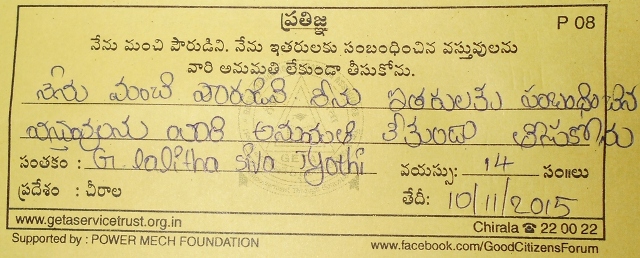 ప్రతిజ్ఞ
P 08
నేను మంచి పౌరుడిని. నేను ఇతరులకు సంబంధించిన వస్తువులను
వారి అనుమతి లేకుండా తీసుకోను.
నేను మంచి పౌరుడిని నేను ఇతరులకు సంబంధించిన
వస్తువులను వారి అనుమతి లేకుండా తీసుకోను
సంతకం : G. lalitha siva Jyothi వయస్సు: 14 సం॥లు
ప్రదేశం : చీరాల తేదీ: 10/11/2015
www.getaservicetrust.org.in Chirala ☎ 22 00 22
Supported by : POWER MECH FOUNDATION www.facebook.com/GoodCitizensForum